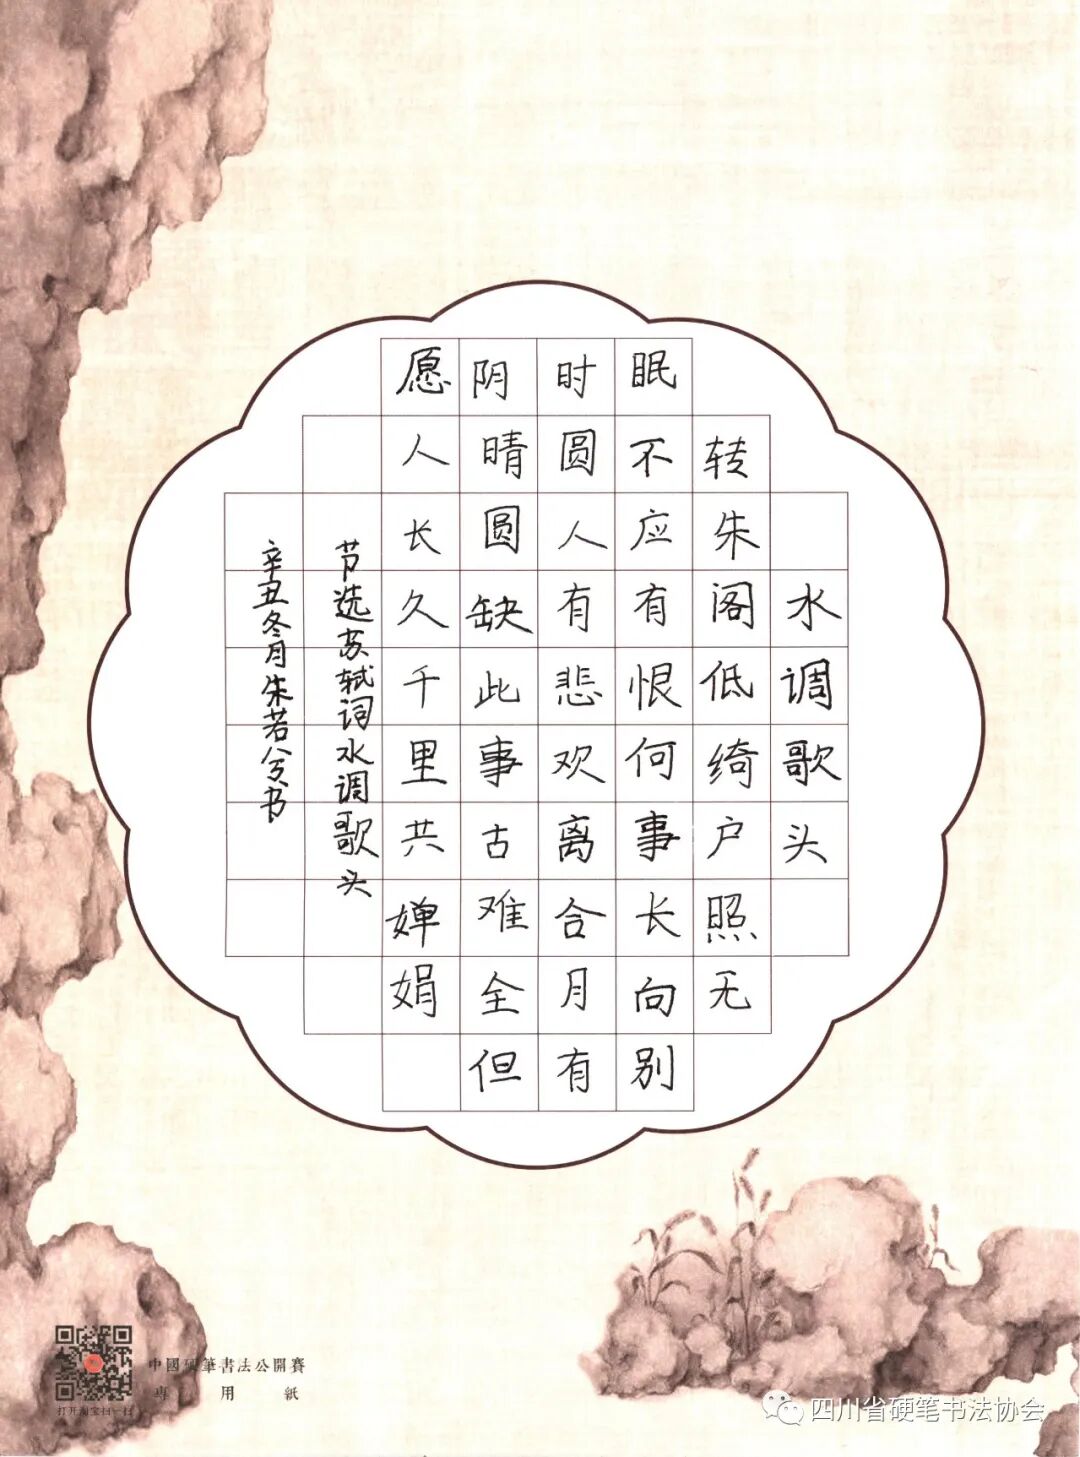 水调歌头
转朱阁低绮户照无
眠不应有恨何事长向别
时圆人有悲欢离合月有
阴晴圆缺此事古难全但
愿人长久千里共婵娟
节选苏轼词水调歌头
辛丑冬月朱若兮书
中國硬筆書法公開賽
專用紙
打开淘宝扫一扫
四川省硬笔书法协会